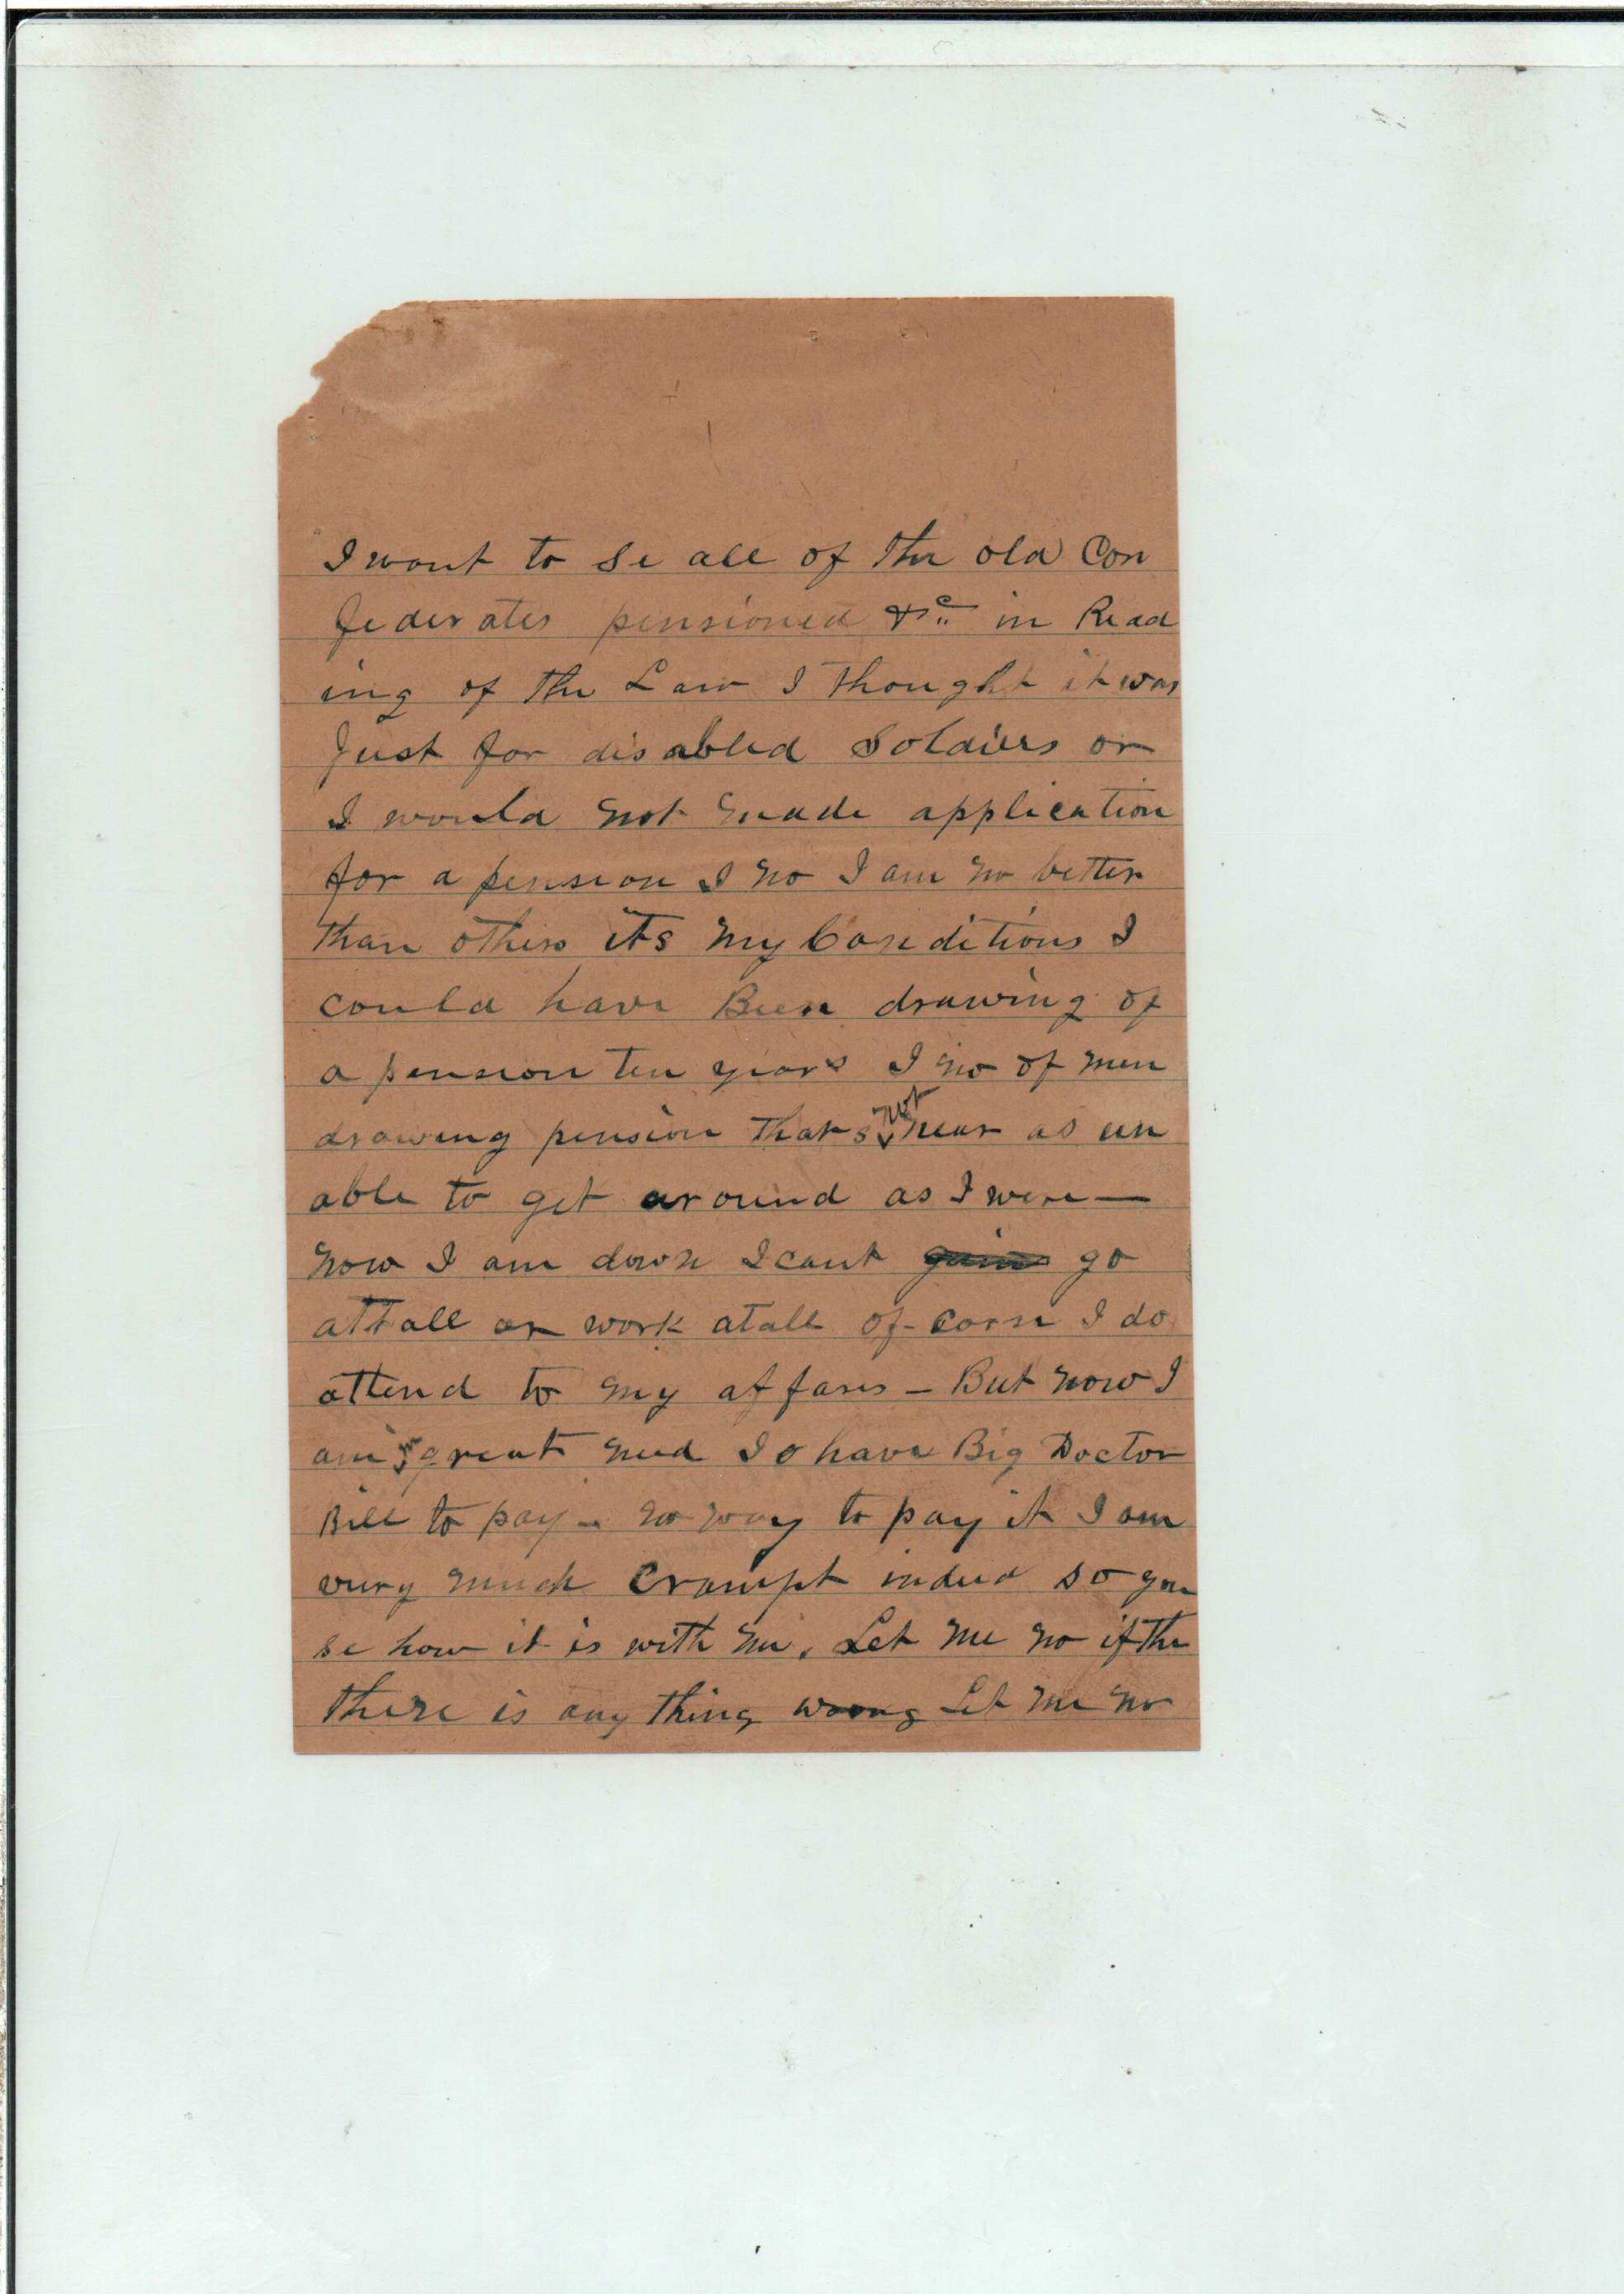 I want to se all of the old Con
federates pensioned &c in Read
ing of the Law I thought it was
Just for disabled Soldiers or
I would not made application
for a pension I no I am no better
than others its my Conditions I
could have Been drawing of
a pension ten years I no of men
drawing pension thats not near as un
able to get around as I were —
now I am down I cant go
attall or work atall of-corse I do
attend to my affars — But now I
am great need I have Big Doctor
Bill to pay — no way to pay it I am
very much crampt indeed so you
se how it is with me. Let me no if the
there is any thing wrong Let me no